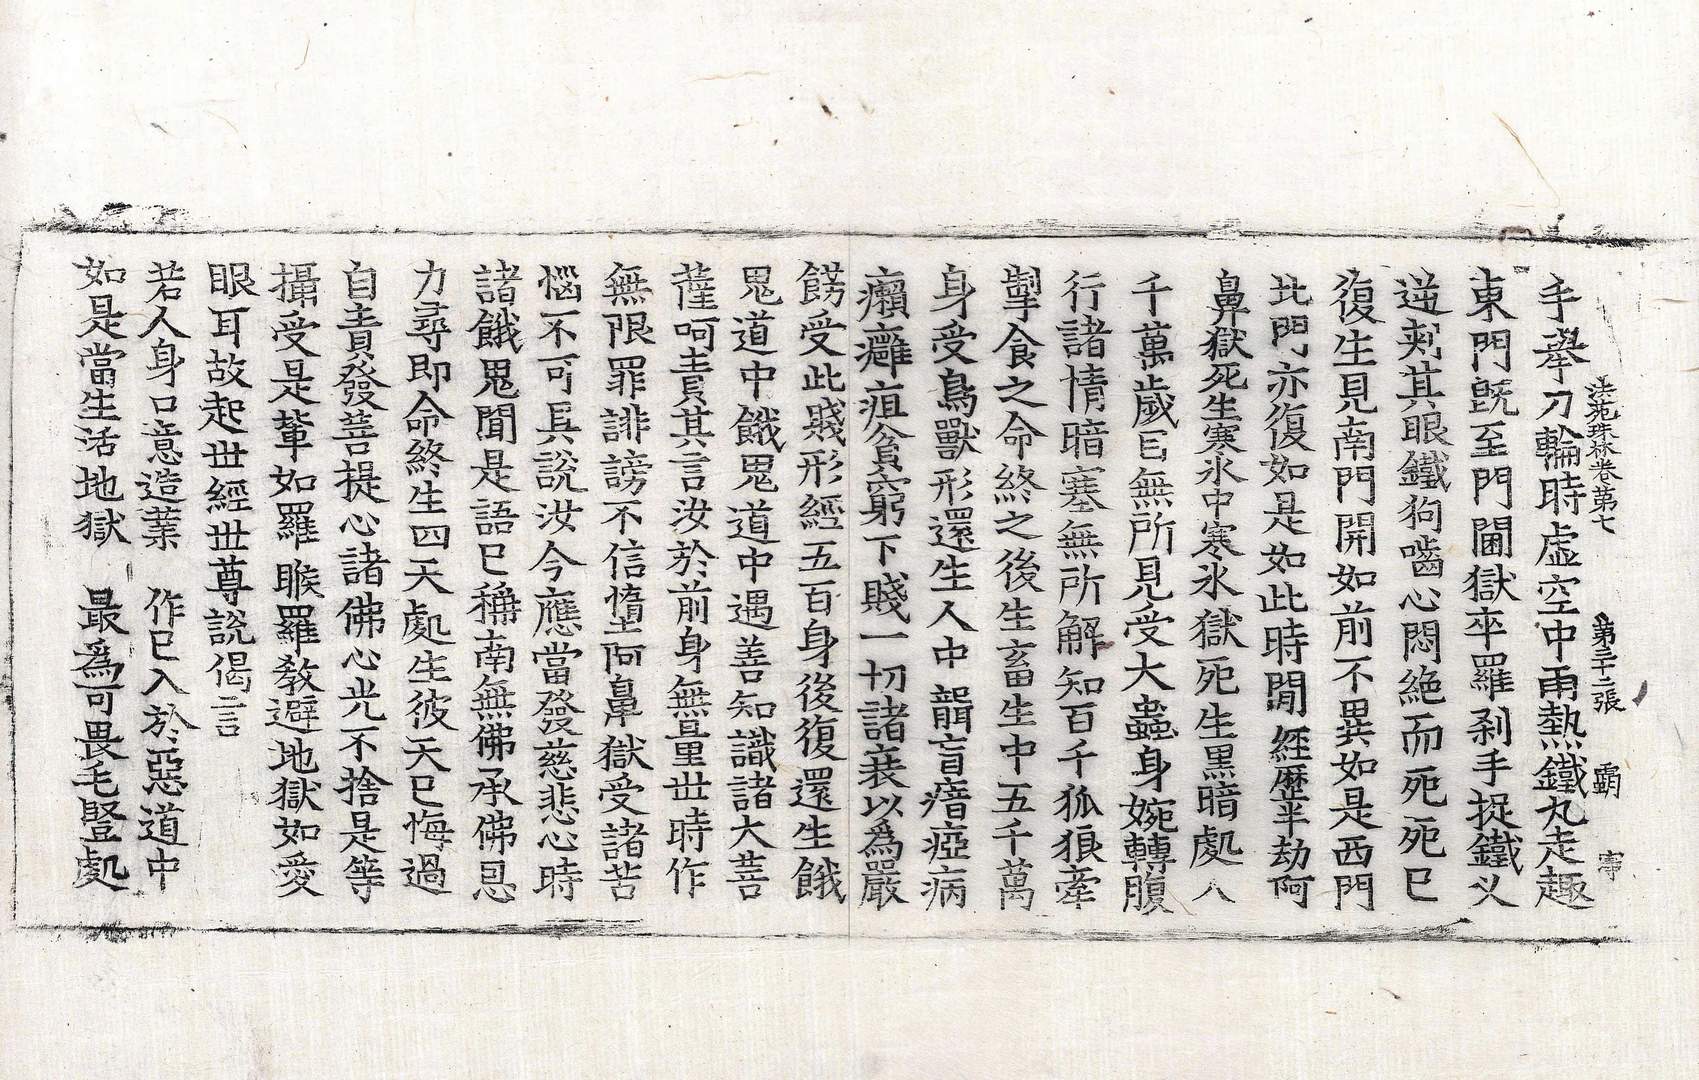 法苑珠林卷第七 第三十二張 覇
手擧刀輪時虛空中雨熱鐵丸走趣
東門旣至門閫獄卒羅刹手捉鐵义
逆刾其眼鐵狗嚙心悶絕而死死已
復生見南門開如前不異如是西門
北門亦復如是如此時閒經歷半劫阿
鼻獄死生寒氷中寒氷獄死生黑暗處八
千萬歲目無所見受大蟲身婉轉腹
行諸情暗塞無所解知百千狐狼牽
掣食之命終之後生畜生中五千萬
身受鳥獸形還生人中聾盲瘖瘂病
癩癰疽貧窮下賤一切諸衰以爲嚴
餝受此賤形經五百身後復還生餓
鬼道中餓鬼道中遇善知識諸大菩
薩呵責其言汝於前身無量世時作
無限罪誹謗不信墮阿鼻獄受諸苦
惱不可具說汝今應當發慈悲心時
諸餓鬼聞是語已稱南無佛承佛恩
力尋即命終生四天處生彼天已悔過
自責發菩提心諸佛心光不捨是等
攝受是輩如羅睺羅敎避地獄如愛
眼耳故起世經世尊說偈言
若人身口意造業 作已入於惡道中
如是當生活地獄 最爲可畏毛豎處